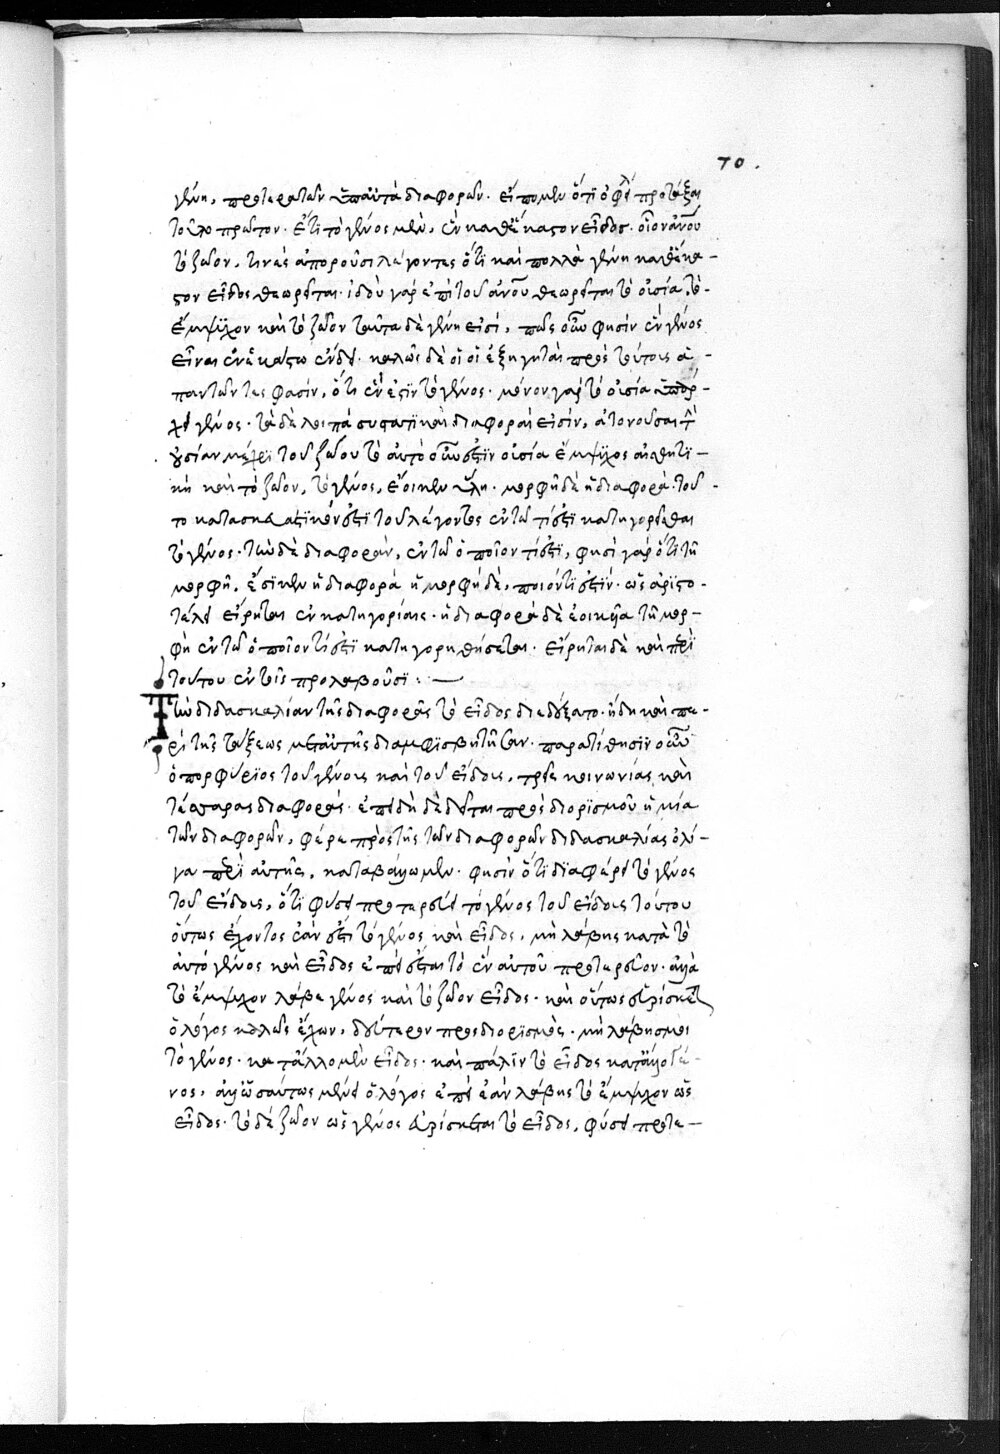 70.
γένη, πρότερα τῶν ὑπ' αὐτὰ διαφορῶν. εἴπομεν ὅτι ὀφείλει προτάξαι
τοῦτο πρῶτον. ἔτι τὸ γένος μὲν, ἓν καθ' ἕκαστον εἶδος. οἷον ἀνου
τὸ ζῶον, τινὲς ἀποροῦσι λέγοντες ὅτι καὶ πολλὰ γένη καθ' ἕκα-
στον εἶδος θεωρεῖται. ἰδοὺ γὰρ ἐπὶ τοῦ ἀνου θεωρεῖται τὸ οὐσία, τὸ
ἔμψυχον καὶ τὸ ζῶον ταῦτα δὲ γένη εἰσὶ, πῶς οὖν φησὶν ἓν γένος
εἶναι ἐν ἑκάστω εἴδει. καλῶς δὲ οἱ οἱ ἐξηγηταὶ πρὸς τούτοις ἀ-
παντῶντες φασὶν, ὅτι ἕν ἐστιν τὸ γένος. μόνον γὰρ τὸ οὐσία ὑπάρ-
χει γένος. τὰ δὲ λοιπὰ συστατικαὶ διαφοραί εἰσὶν, ἀτονοῦσαι τὴν
οὐσίαν μέχρι τοῦ ζώου τὸ αὐτὸ οὖν ἐστιν οὐσία ἔμψυχος αἰσθητι-
κὴ καὶ τὸ ζῶον, τὸ γένος, ἔοικεν ὕλη. μορφῆ δὲ ἡ διαφορὰ. τοῦ-
το κατασκευαστικόν ἐστι τοῦ λέγοντος ἐν τῶ τί ἐστι κατηγορεῖσθαι
τὸ γένος. τὴν δὲ διαφορὰν, ἐν τῶ ὁποῖον τί ἐστι, φησὶ γὰρ ὅτι τῆ
μορφῆ, ἔοικεν ἡ διαφορά ἡ μορφὴ δὲ, ποιόν τι ἐστίν. ὡς ἀριστο-
τέλει εἴρηται ἐν κατηγορίαις. ἡ διαφορὰ δὲ ἐοικυῖα τῆ μορ-
φῆ ἐν τῶ ὁποῖον τί ἐστι κατηγορηθήσεται. εἴρηται δὲ καὶ περὶ
τούτου ἐν τοῖς προλαβοῦσι: —
Τὴν διδασκαλίαν τῆς διαφορᾶς τὸ εἶδος διεδέξατο. ἤδη καὶ πε-
ρὶ τῆς τάξεως μετ' αὐτῆς διαμφισβητῆσαν. παρατίθησιν οὖν
ὁ πορφύριος τοῦ γένους καὶ τοῦ εἴδους, τρεῖς κοινωνίας καὶ
τέσσαρας διαφοράς. ἐπειδὴ δὲ δεῖται προσδιορισμοῦ ἡ μία
τῶν διαφορῶν, φέρε πρὸς τῆς τῶν διαφορῶν διδασκαλίας ὀλί-
γα περὶ αὐτῆς, καταβάλωμεν. φησὶν ὅτι διαφέρει τὸ γένος
τοῦ εἴδους, ὅτι φύσει προτερεῖ τὸ γένος τοῦ εἴδους τούτου
οὕτως ἔχοντος ἐάν ἐστι τὸ γένος καὶ εἶδος, μὴ λάβης κατὰ τὸ
αὐτό γένος καὶ εἶδος ἐπεὶ ἔσται τὸ ἓν αὐτοῦ προτερεῦον. ἀλλὰ
τὸ ἔμψυχον λάβε γένος καὶ τὸ ζῶον εἶδος. καὶ οὕτως εὑρίσκεται
ὁ λόγος καλῶς ἔχων, δεύτερον προσδιορισμὸς. μὴ λάβης μοι
τὸ γένος. κατ' ἄλλο μὲν εἶδος. καὶ πάλιν τὸ εἶδος κατ' ἄλλο γέ-
νος, ἀλλ' ὡσαύτως μένει ὁ λόγος ἐπεὶ ἐὰν λάβης τὸ ἔμψυχον ὡς
εἶδος. τὸ δὲ ζῶον ὡς γένος εὑρίσκεται τὸ εἶδος, φύσει προτε-